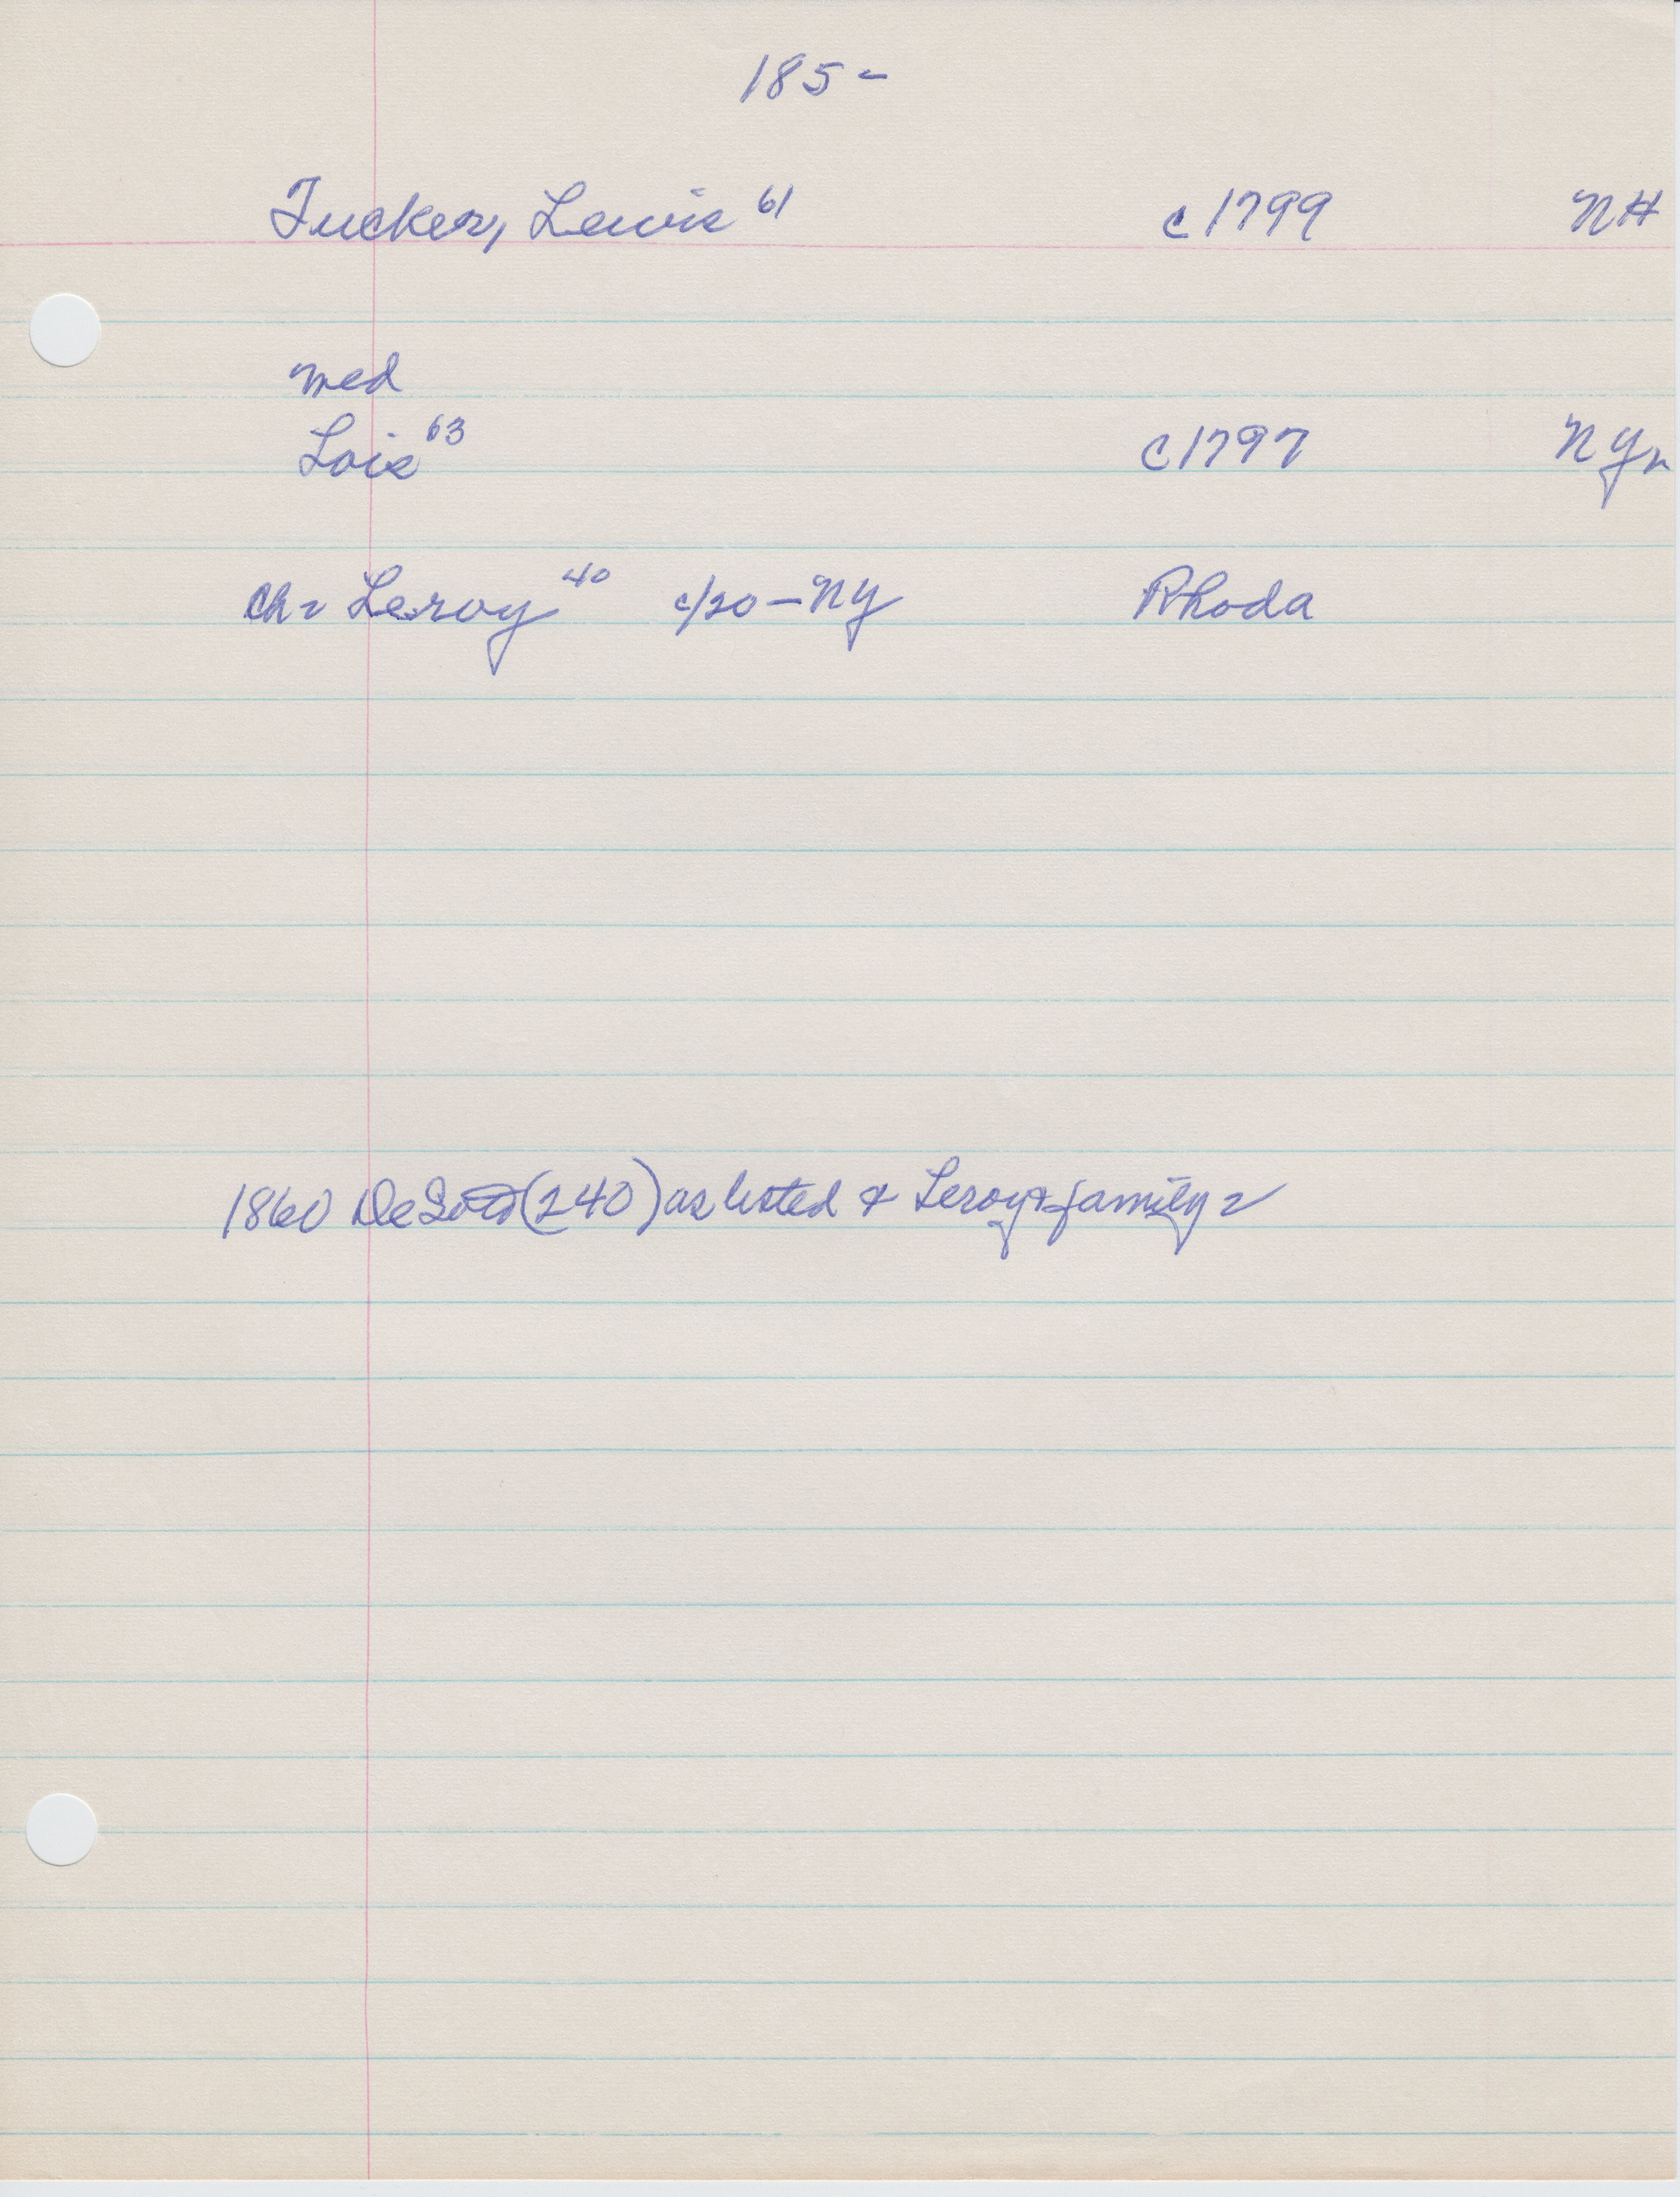 185-
Tucker, Lewis 61 c1799 NH
med
Lois 63 c1797 NY
Ch = Leroy 40 c/20 - NY Rhoda
1860 DeSoto (240) as listed & Leroy & family =